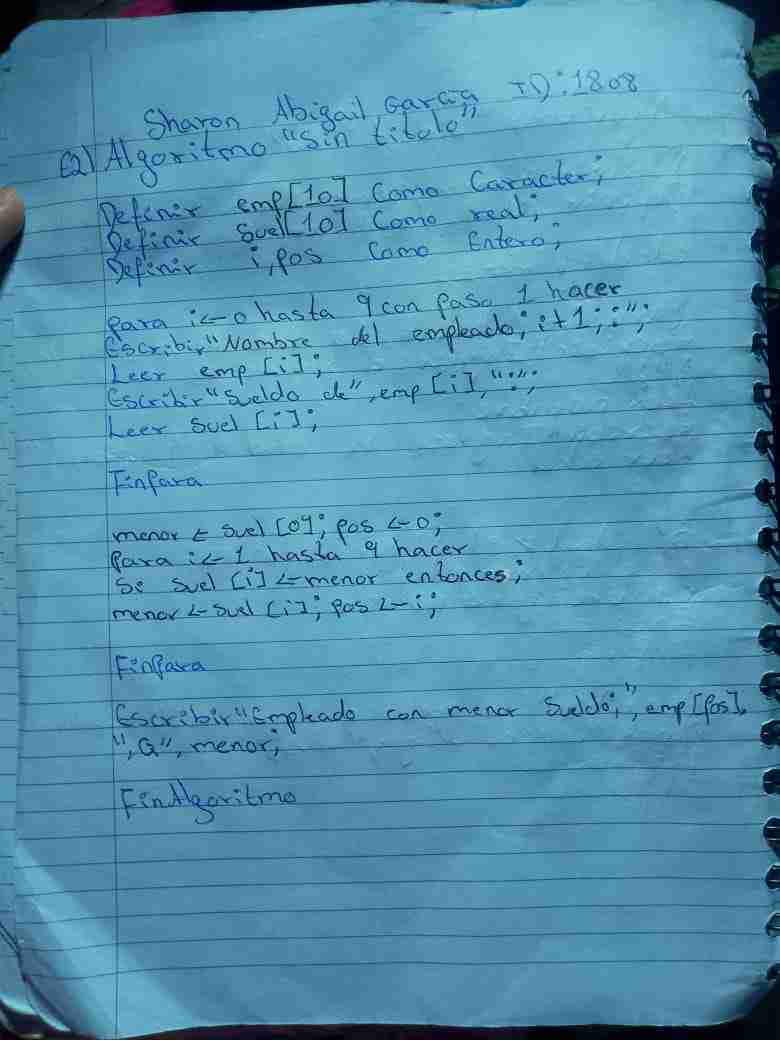 Sharon Abigail Garcia ID:1808
E2) Algoritmo "Sin titolo"
Definir emp[10] Como Caracter;
Definir Suel[10] Como real;
Definir i,pos Como Entero;
para i<-0 hasta 9 con paso 1 hacer
Escribir "Nombre del empleado; i+1; :";
Leer emp [i];
Escribir "Sueldo de", emp [i], ":";
Leer Suel [i];
Finpara
menor ← suel [09; pos <-0;
para i<-1 hasta 9 hacer
Se suel [i] <-menor entonces;
menor <-Suel [i]; pos <-i;
Finpara
Escribir "Empleado con menor Sueldo;", emp [pos],
", G", menor;
FinAlgoritmo